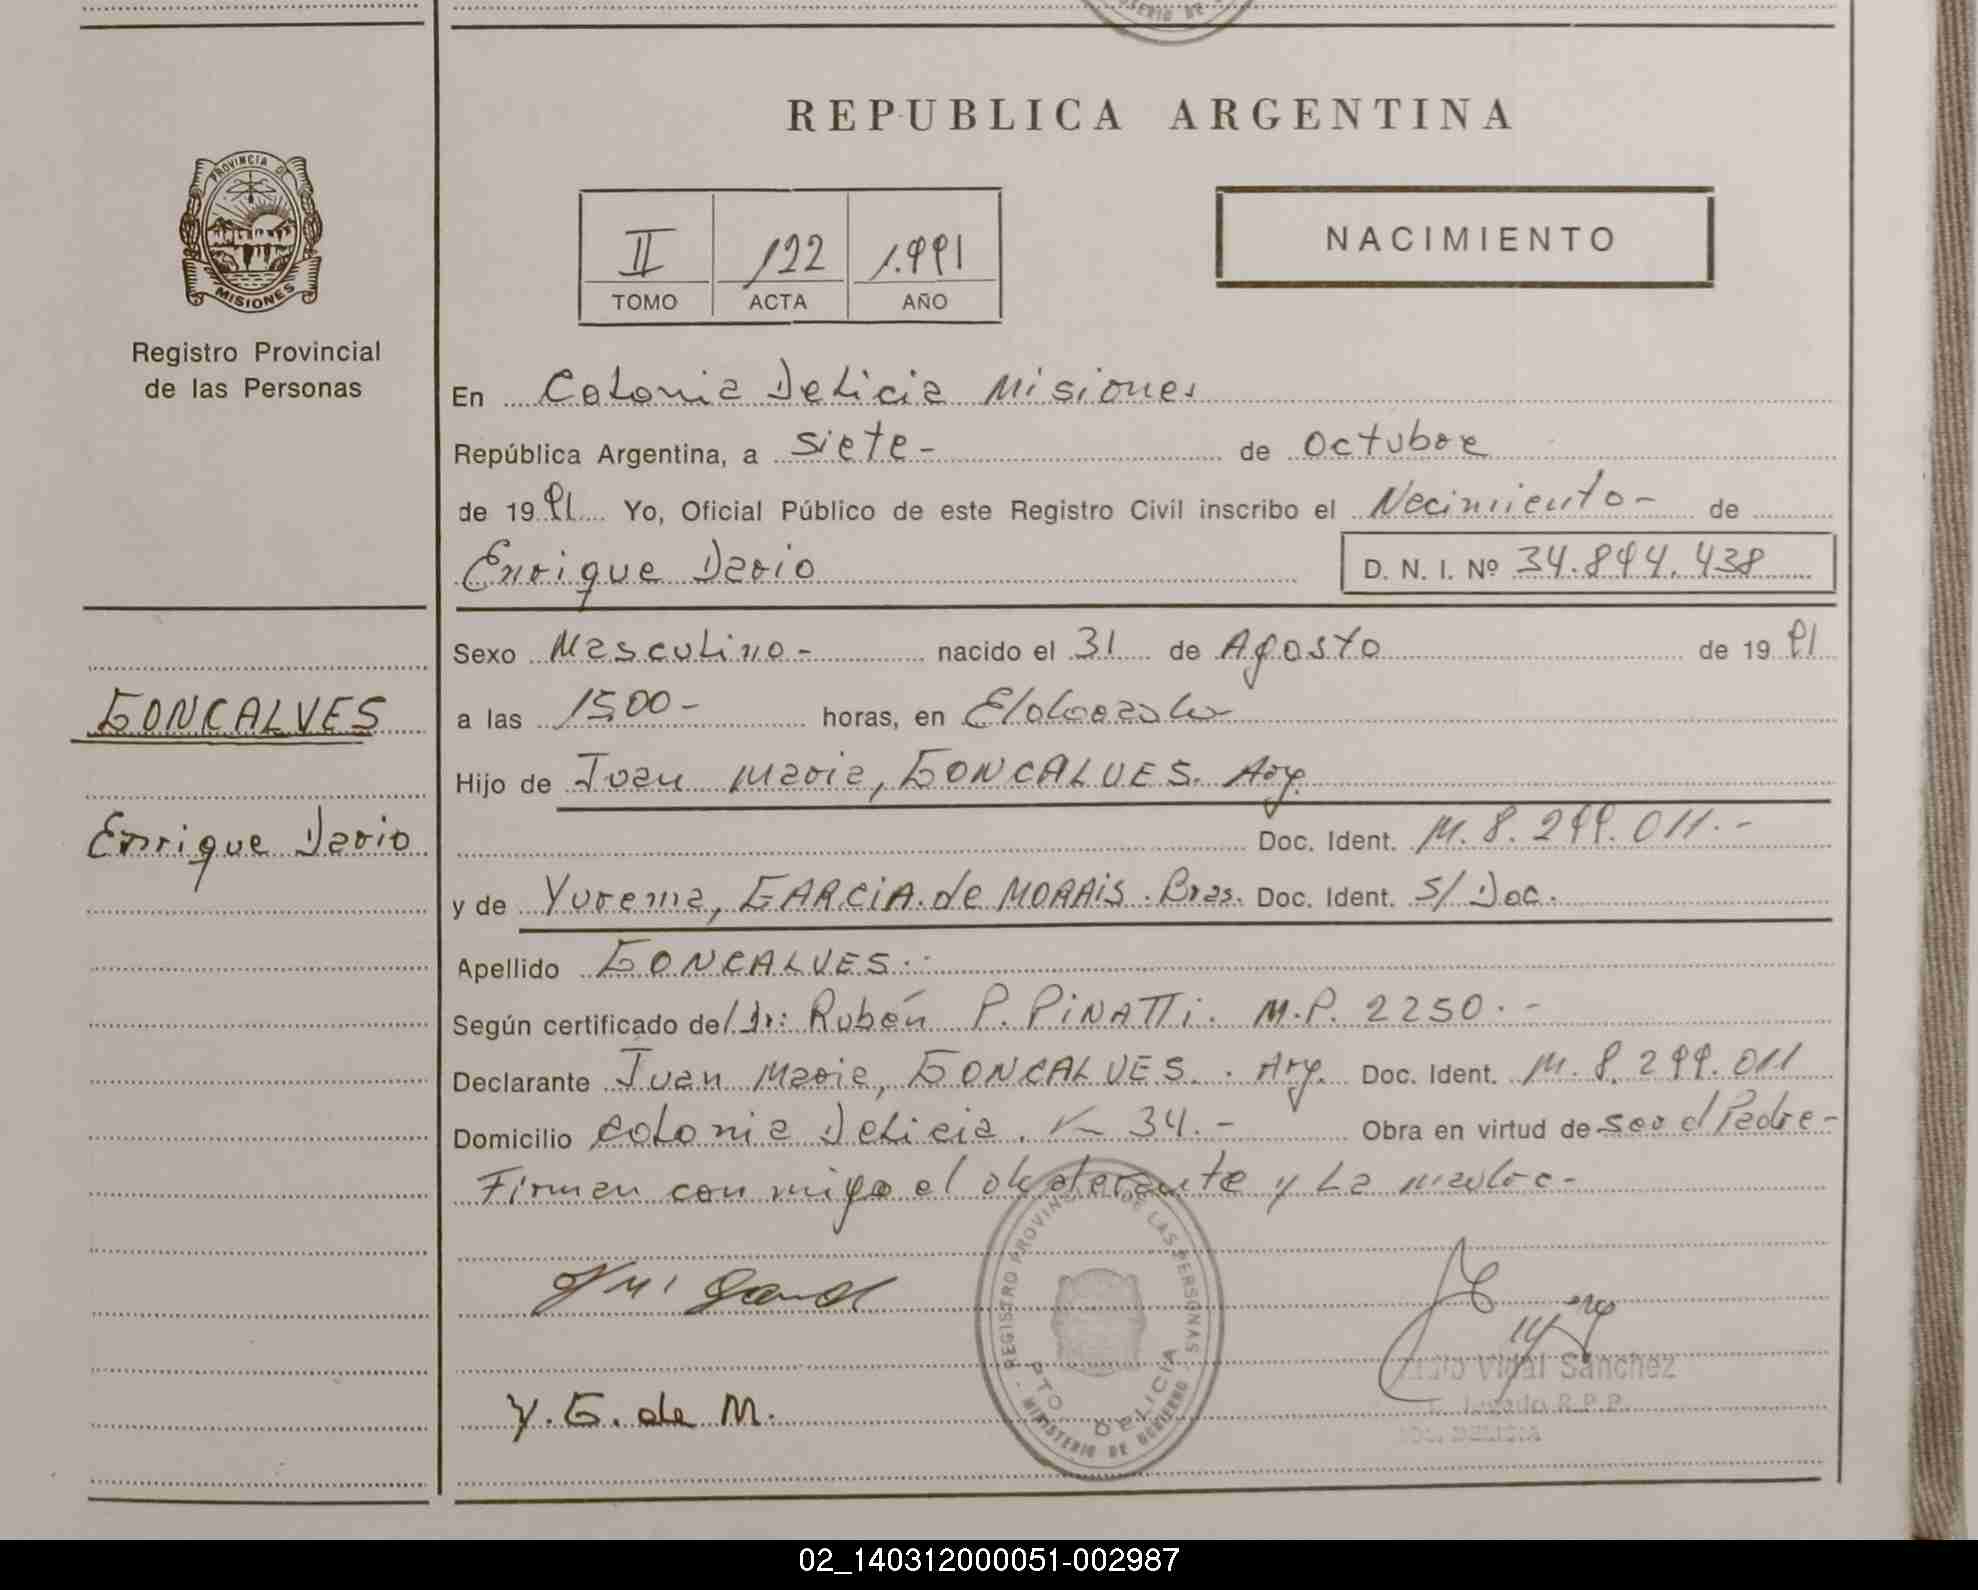 REPUBLICA ARGENTINA
PROVINCIA DE
MISIONES
Registro Provincial
de las Personas
II 122 1.991
TOMO ACTA AÑO
NACIMIENTO
En Colonia Delicia Misiones
República Argentina, a siete- de octubre
de 1991 Yo, Oficial Público de este Registro Civil inscribo el Nacimiento- de
Enrique Dario D. N. I. Nº 34.894.438
Sexo Masculino- nacido el 31 de Agosto de 1991
GONCALVES
a las 1500- horas, en Eldorado
Hijo de Juan Maria, GONCALVES. Arg.
Enrique Dario
Doc. Ident. M. 8. 299. 011.-
y de Yurema, GARCIA de MORAIS. Bras. Doc. Ident. S/ Doc.
Apellido GONCALVES.
Según certificado del Dr: Rubén P. PiNATTi. M.P. 2250.-
Declarante Juan Maria, GONCALVES. Arg. Doc. Ident. M. 8. 299. 011
Domicilio Colonia Delicia. K 34.- Obra en virtud de ser el Padre-
Firman conmigo el declarante y La madre-
REGISTRO PROVINCIAL DE LAS PERSONAS
PTO. DELICIA
MINISTERIO DE GOBIERNO
Vidal Sanchez
R.P.P.
DELICIA
Y. G. de M.
02_140312000051-002987